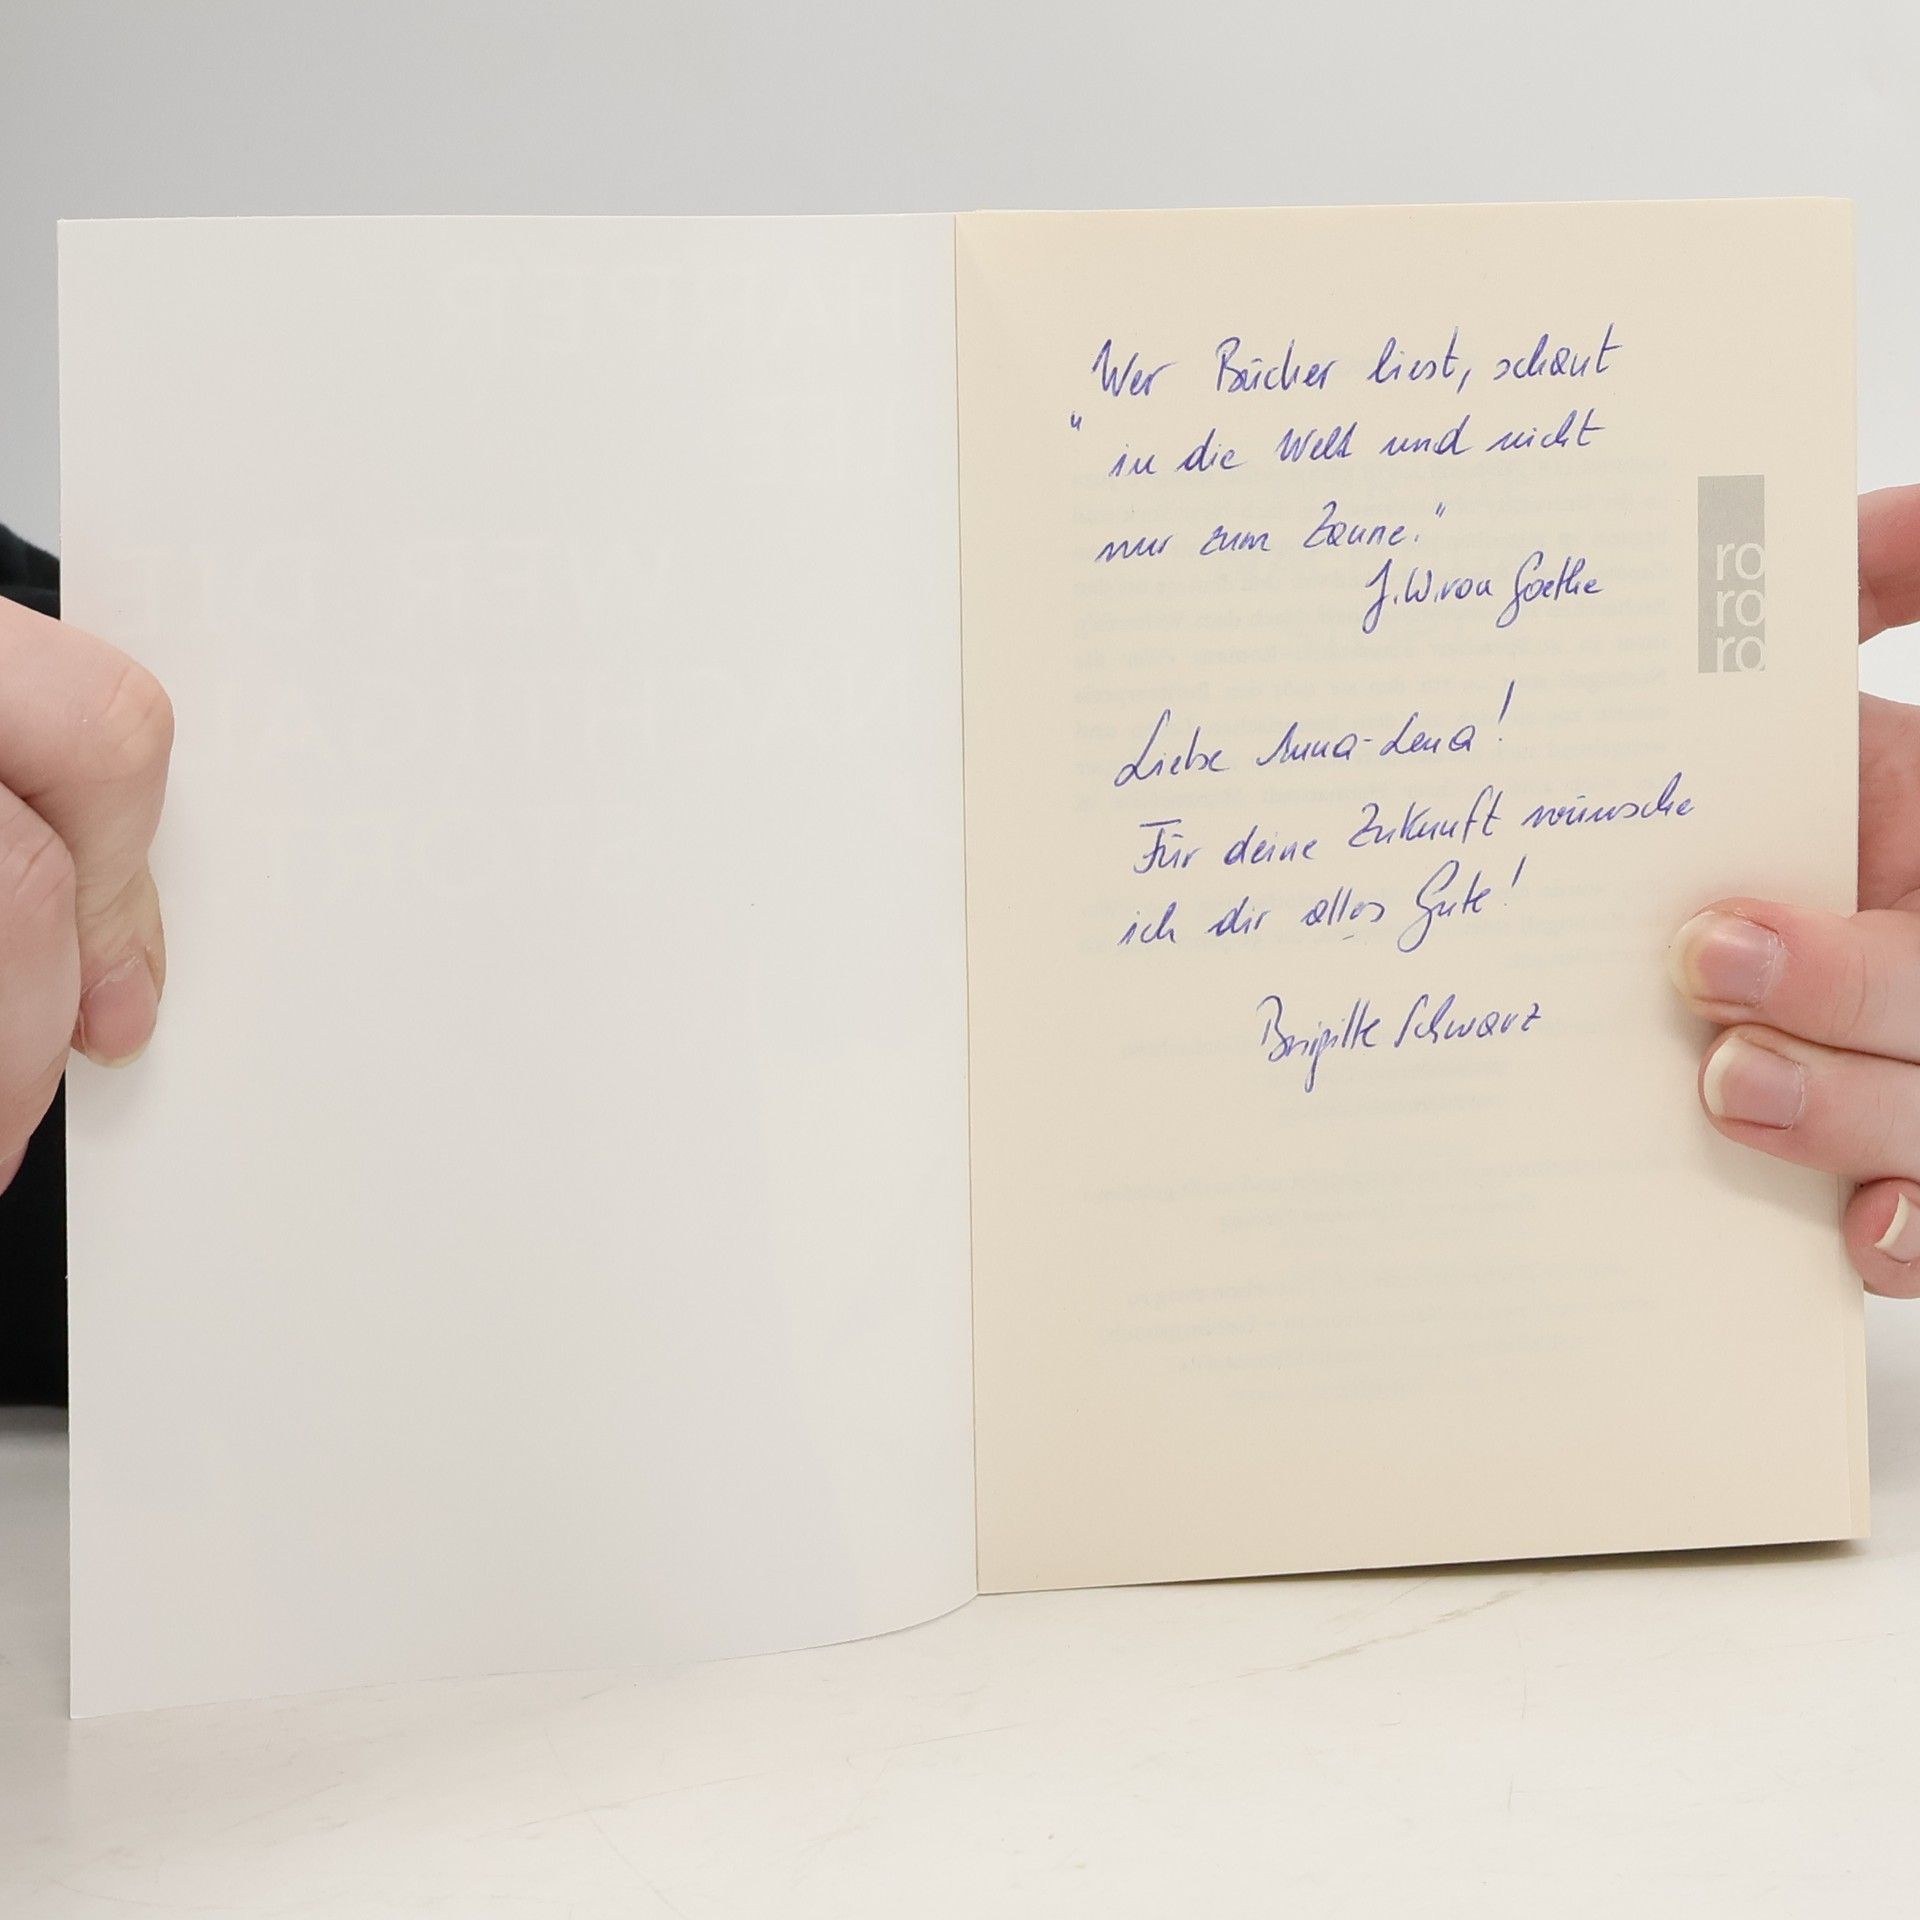 Wer Bücher liest, schaut
"in die Welt und nicht
nur zum Zaune."
J.W.von Goethe
ro
ro
ro
Liebe Anna-Lena!
Für deine Zukunft wünsche
ich dir alles Gute!
Brigitte Schwarz